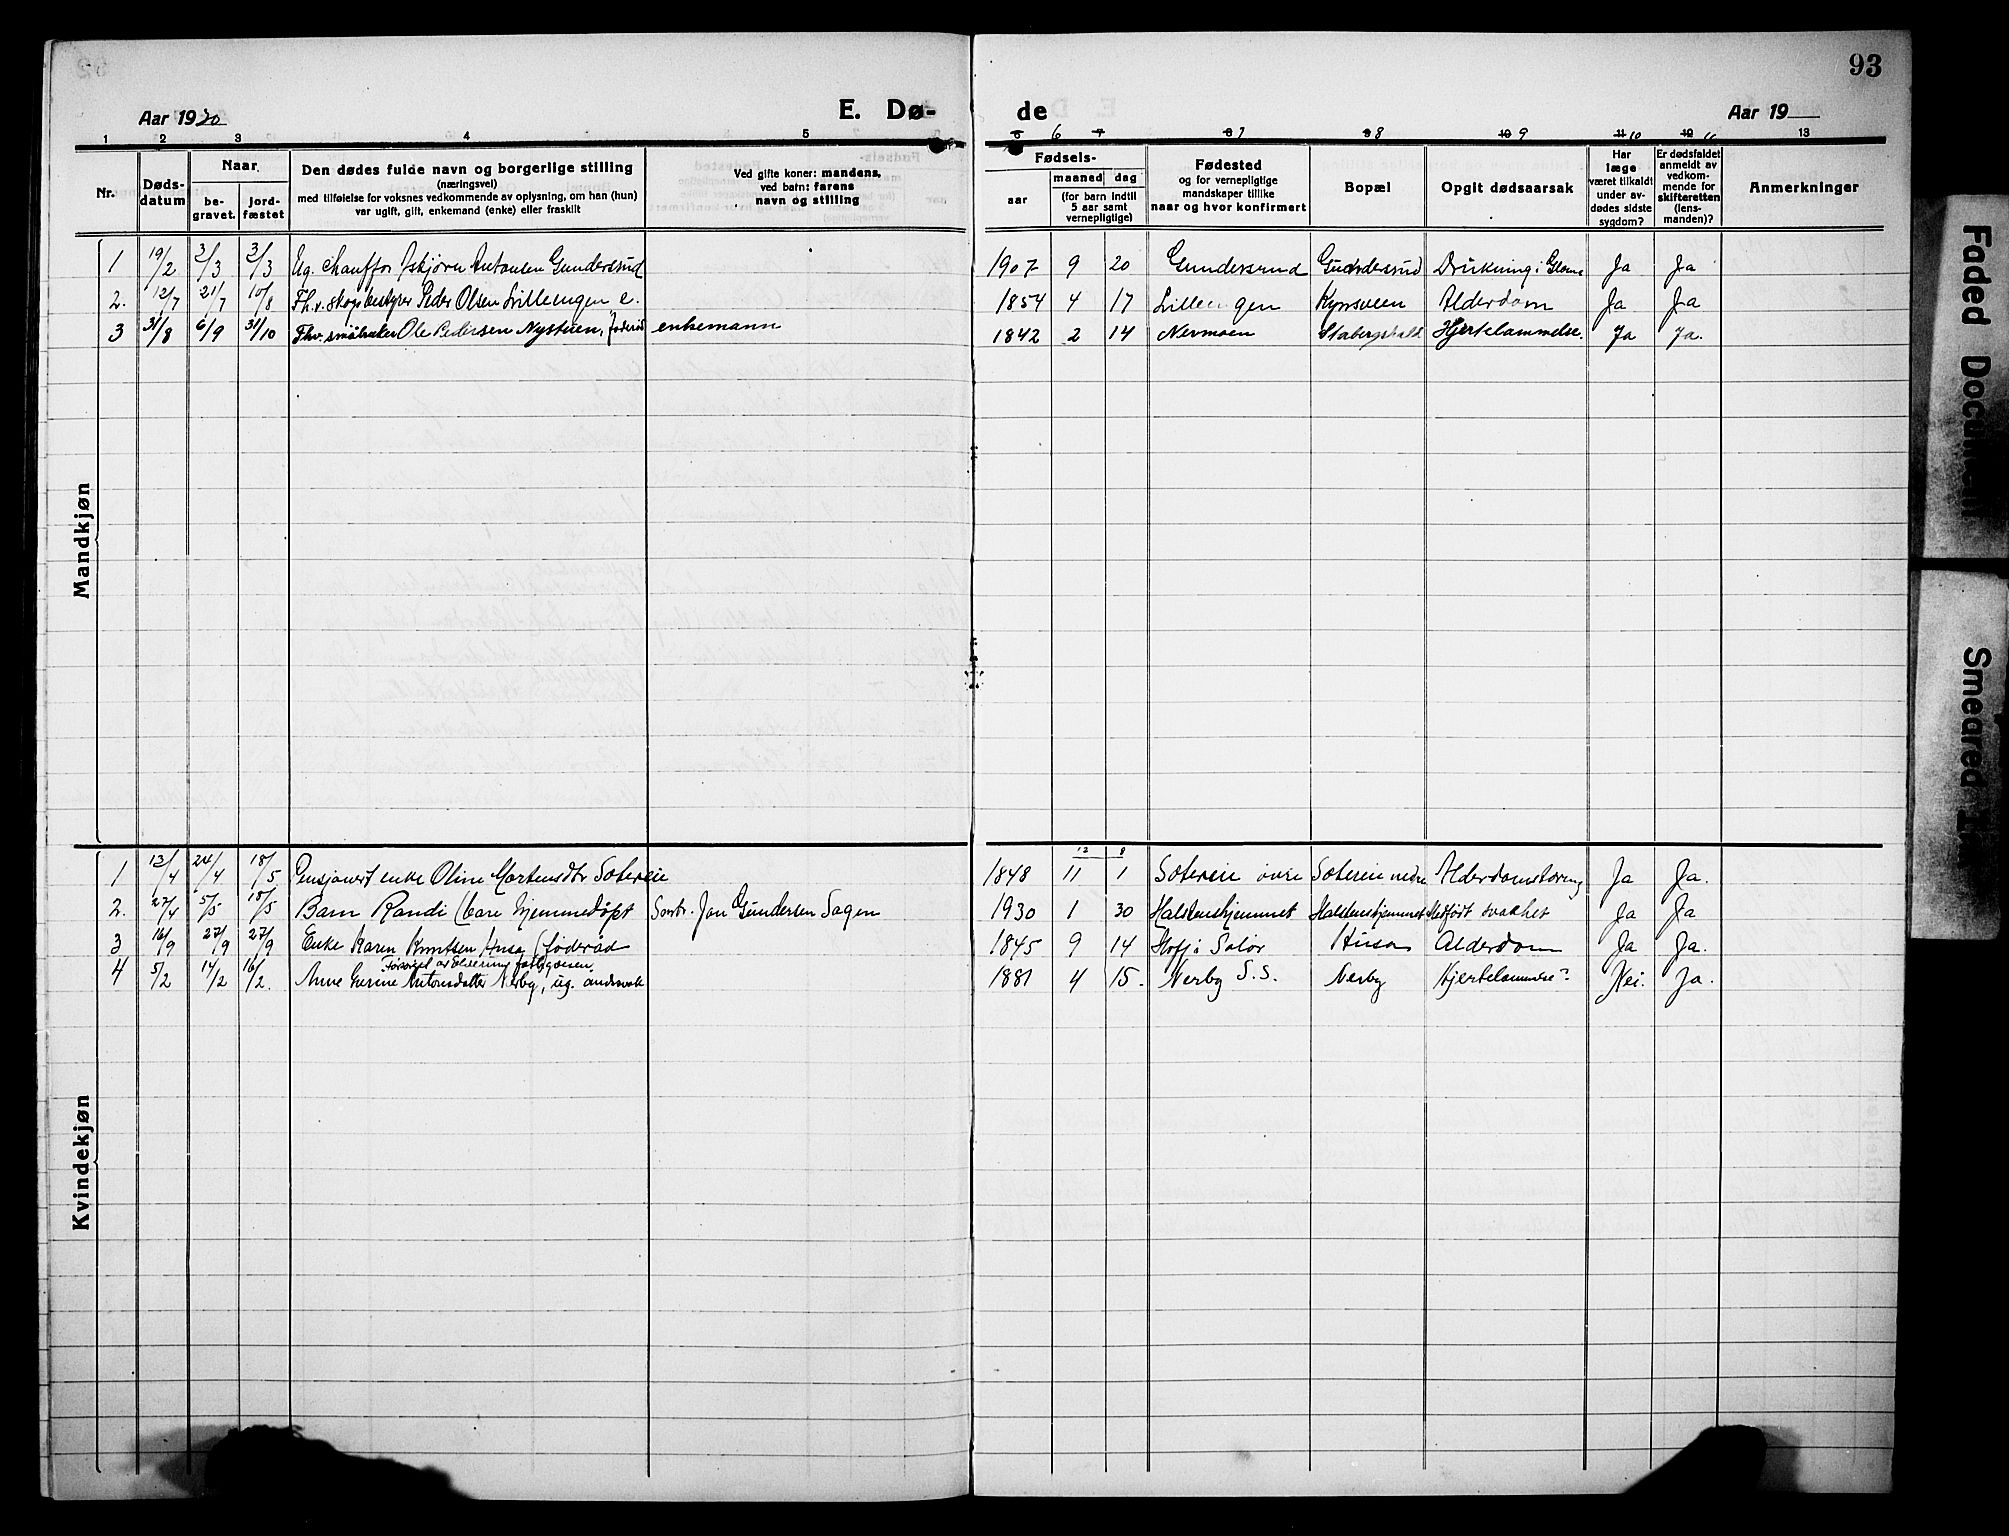 93
Aar 1930 E. Dø- de Aar 19
1 2 3 4 5 6 7 8 9 10 11 13
Nr. Døds-datum Naar be-gravet. jord-fæstet Den dødes fulde navn og borgerlige stilling (næringsvei) med tilføielse for voksnes vedkommende av oplysning, om han (hun) var ugift, gift, enkemand (enke) eller fraskilt Ved gifte koner: mandens, ved barn: farens navn og stilling Fødsels- aar maaned dag (for barn indtil 5 aar samt vernepligtige) Fødested og for vernepligtige mandskaper tillike naar og hvor konfirmert Bopæl Opgit dødsaarsak Har læge været tilkaldt under av-dødes sidste sygdom? Er dødsfaldet anmeldt av vedkom-mende for skifteretten (lens-manden)? Anmerkninger
Mandkjøn
1 19/2 3/3 3/3 Ug. chauffør Asbjørn Antonsen Gundersrud 1907 9 20 Gundersrud Gundersrud Drukning i Gloma Ja Ja
2. 12/7 21/7 10/8 Fh.v. skogbestyrer Peder Olsen Lilleengen e. 1854 4 17 Lilleengen Kynsveen Alderdom Ja Ja
3 31/8 6/9 31/10 Fhv. småbruker Ole Pedersen Nystuen, føderåd enkemann 1842 2 14 Nermoen Hjertelammelse. Ja Ja.
Kvindekjøn
12 8
1 13/4 24/4 18/5 Pensjonert enke Oline Mortensdtr Sætereie 1848 11 1 Sætereie øvre Sætereie nedre Ja Ja.
2. 27/4 5/5 18/5 Barn Randi (bare hjemmedøpt Jon Gundersen Sagen 1930 1 30 Halstenshjemmet Halstenshjemmet Medført svakhet Ja Ja
3 16/9 27/9 27/9 Enke Karen Knutsen Husa (føderåd 1845 9 14 Hoff i Solør Husa Alderdom Ja Ja.
Forsørget av
4 5/2 14/2 16/2. Anne Gurine Antonsdatter Nerby, ug. 1881 4 15. Nerby S.S. Nerby Hjertelammelse? Nei. Ja.
Faded Document
Smeared Ink